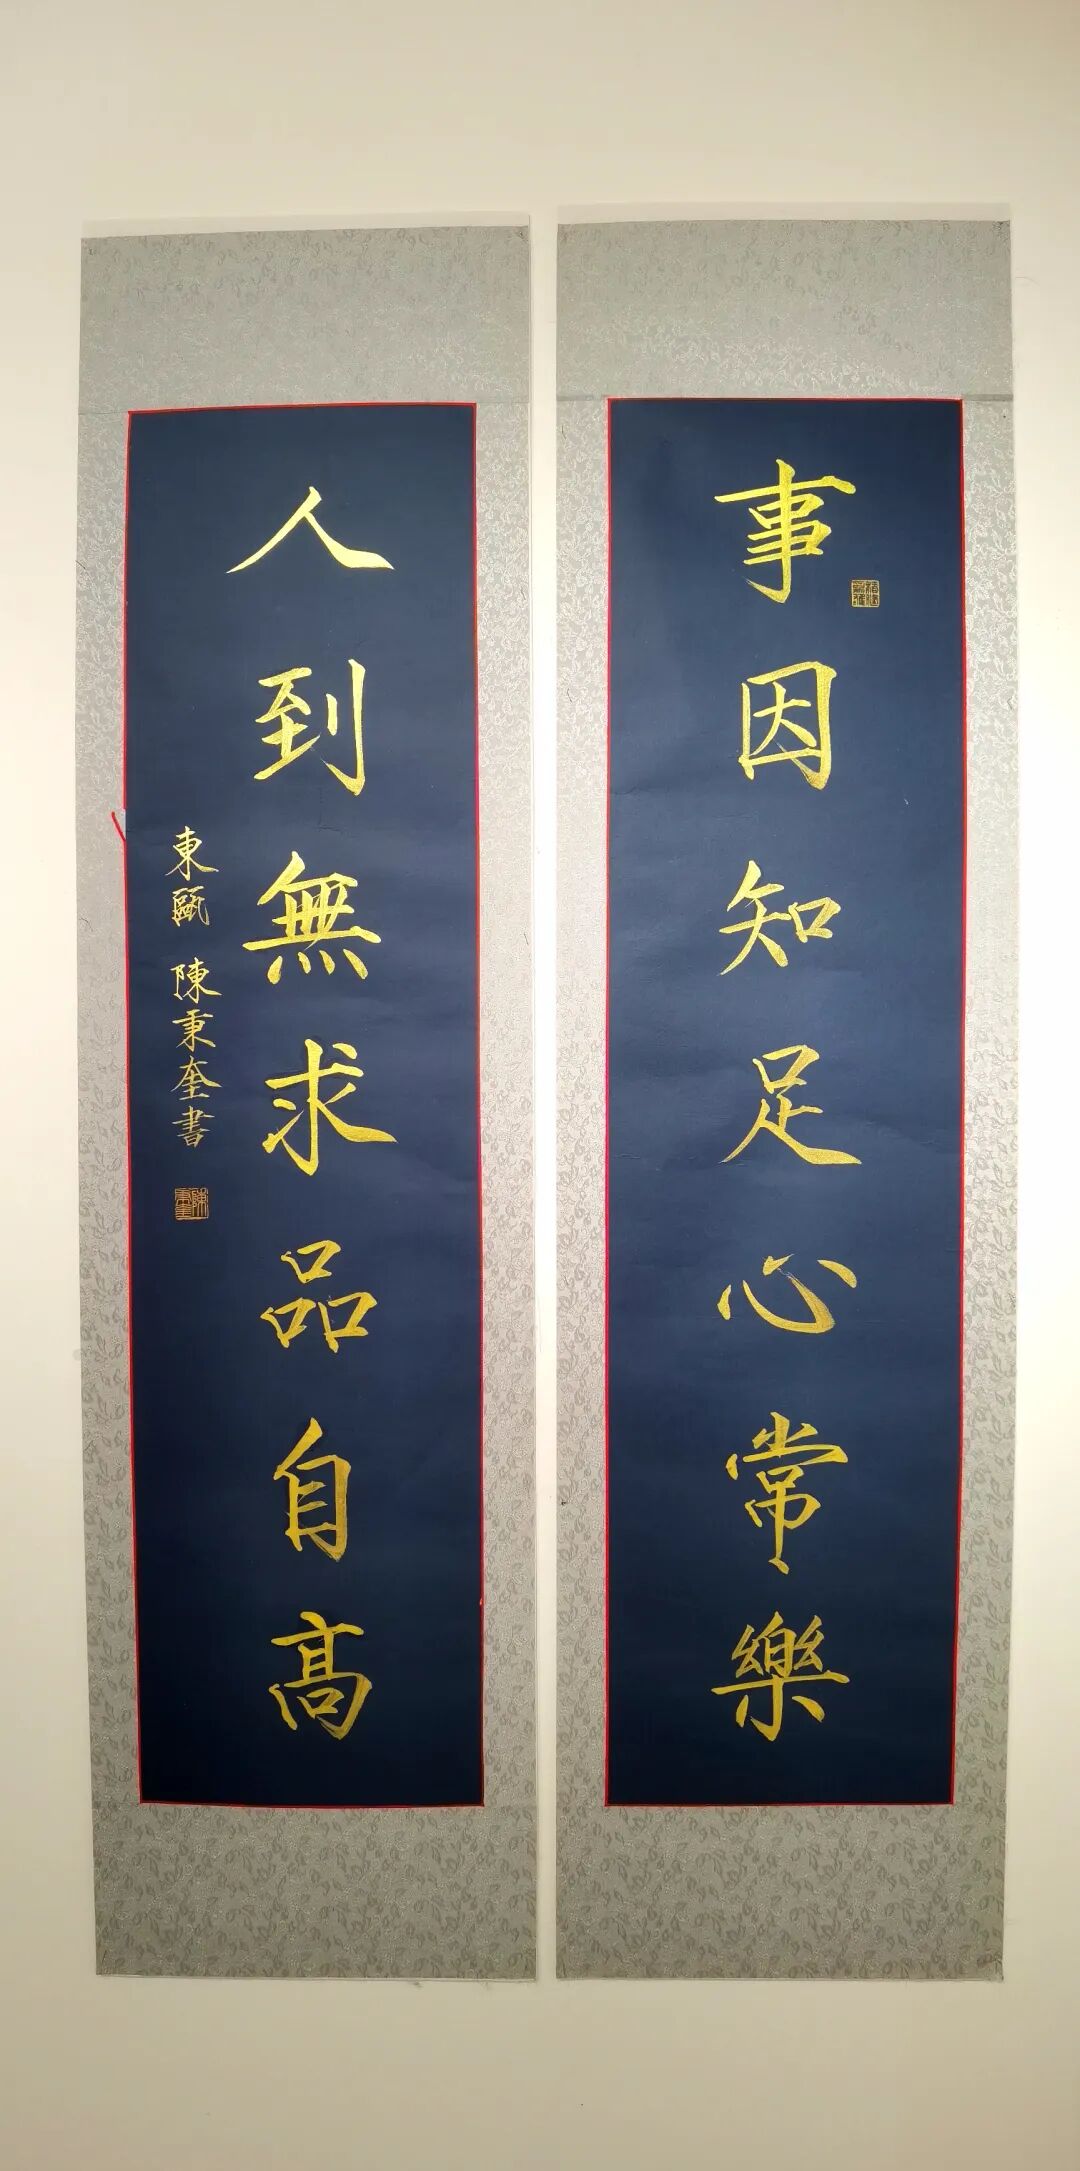 事因知足心常樂
人到無求品自高
東甌 陳秉奎書